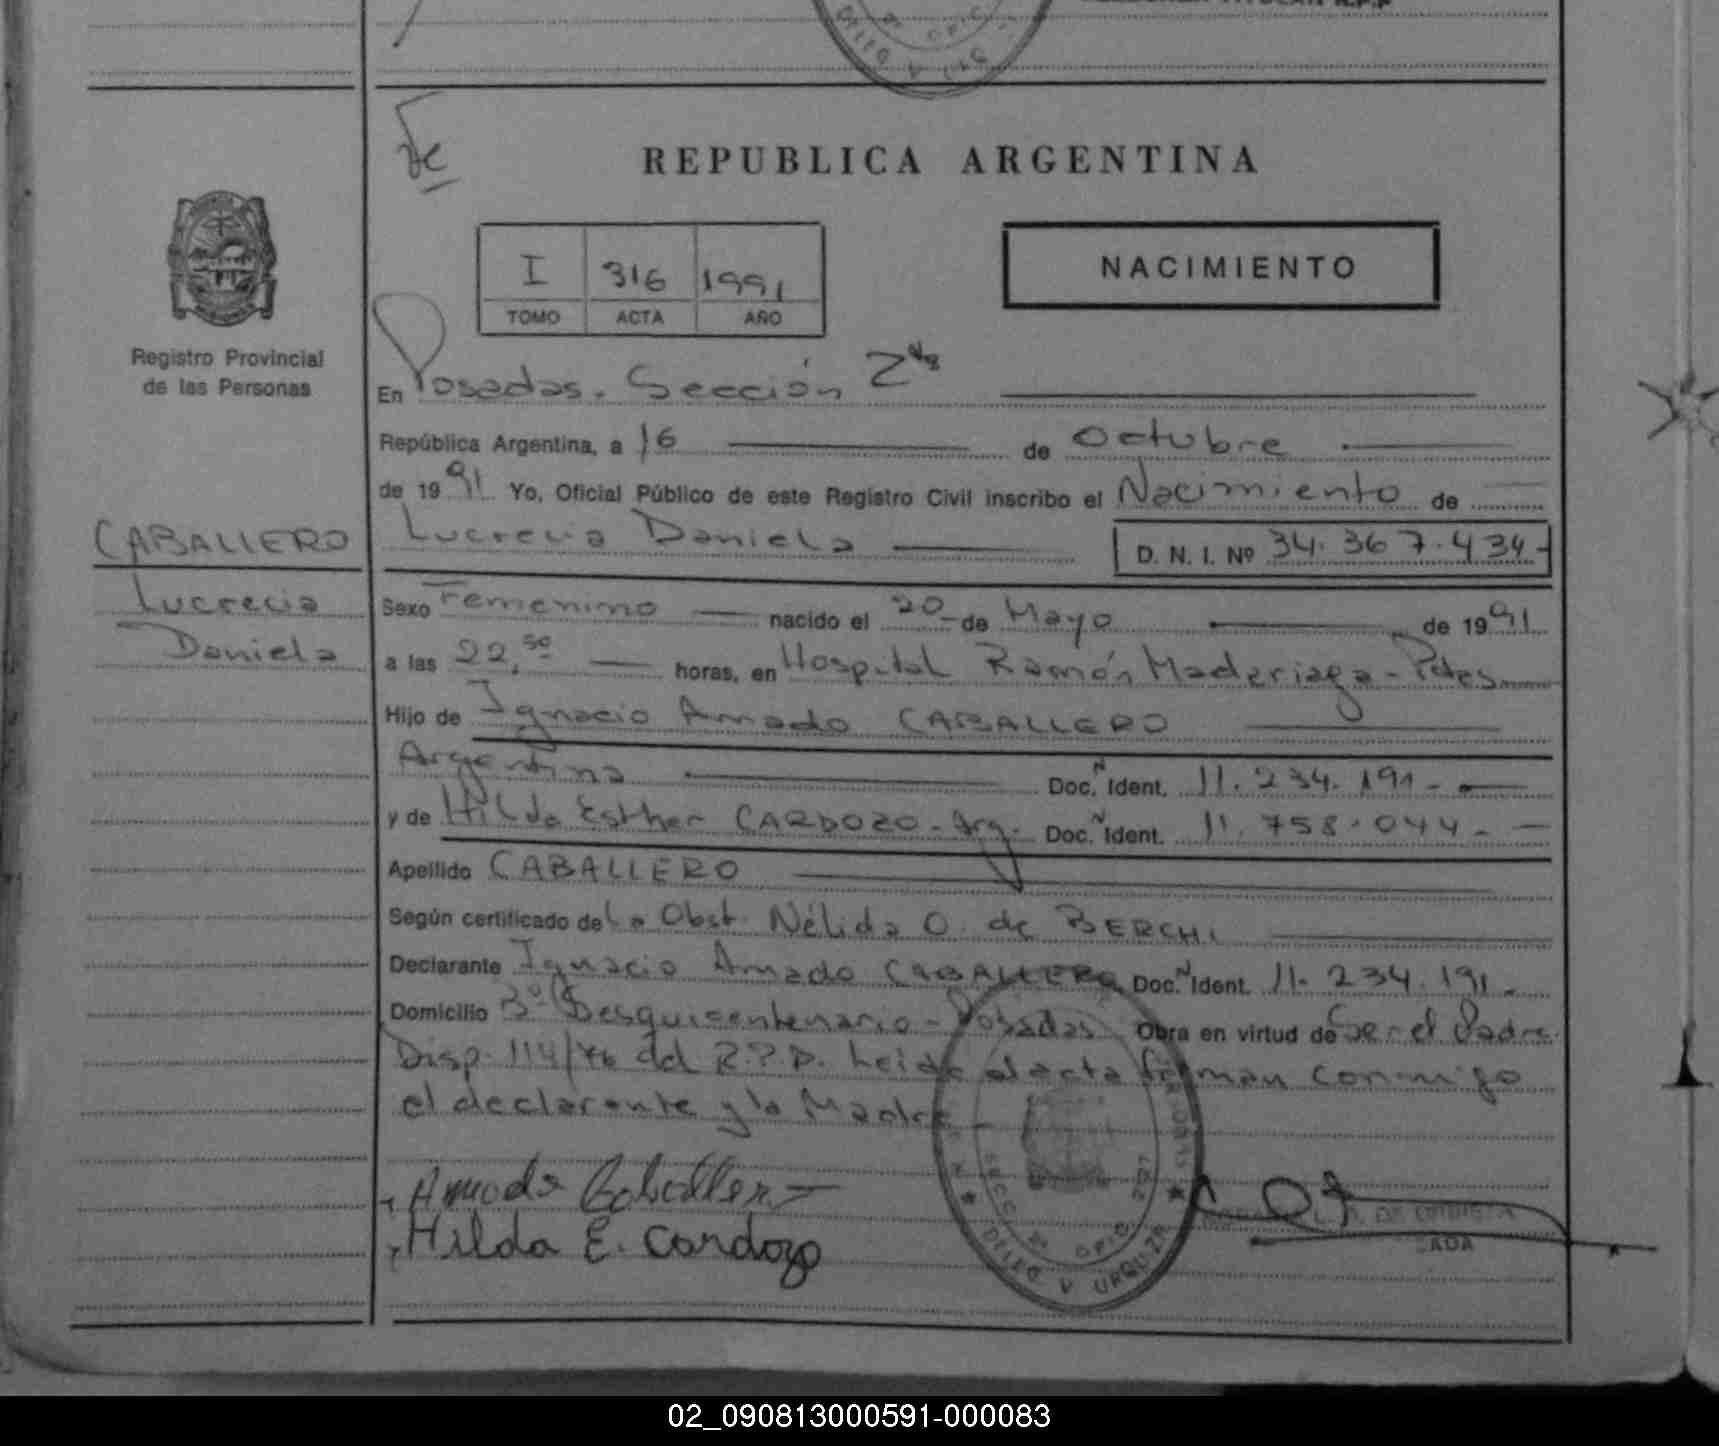 Fe
REPUBLICA ARGENTINA
I 316 1991
TOMO ACTA AÑO
NACIMIENTO
Registro Provincial
de las Personas
En Posadas. Sección 2da
República Argentina, a 16 de Octubre
de 1991 Yo, Oficial Público de este Registro Civil inscribo el Nacimiento de
CABALLERO
Lucrecia
Daniela
Lucrecia Daniela D. N. I. Nº 34.367.434-
Sexo Femenino nacido el 20 de Mayo de 1991
a las 22,50 horas, en Hospital Ramón Madariaga - Pdas
Hijo de Ignacio Amado CABALLERO
Argentina Doc. N Ident. 11.234.191-
y de Hilda Esther CARDOZO - Arg. Doc. N Ident. 11.758.044-
Apellido CABALLERO
Según certificado de La Obst. Nélida O. de BERCHI
Declarante Ignacio Amado CABALLERO Doc. N Ident. 11.234.191-
Domicilio Bº Sesquicentenario - Posadas Obra en virtud de Ser el Padre
Disp. 114/76 del R.P.P. Leida el acta firman conmigo
el declarante y la Madre
Amado Caballero
Hilda E. Cardozo
SECC. OPIC.
DELEG V URQUIZA
02_090813000591-000083